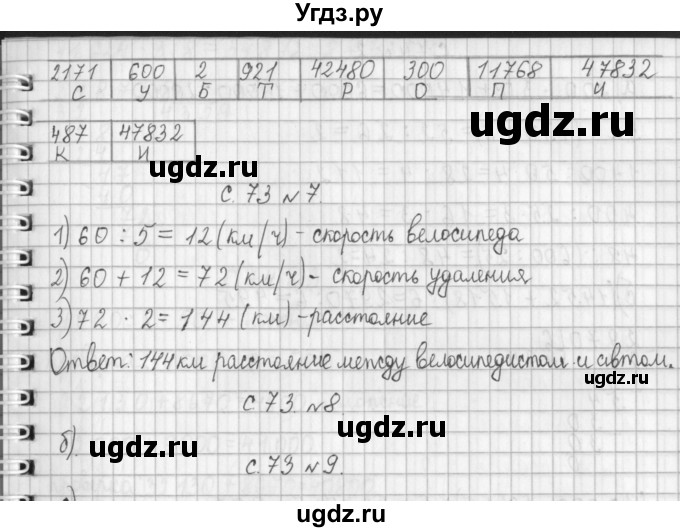 Угдз.ру
2171 600 2 921 42480 300 11768 47832
С У Б Т Р О П И
487 47832
К И
ugdz.ru
ugdz.ru
с. 73 №7.
1) 60 : 5 = 12 (км/ч) - скорость велосипеда
2) 60 + 12 = 72 (км/ч) - скорость удаления
3) 72 · 2 = 144 (км) - расстояние
ugdz.ru
Ответ: 144 км расстояние между велосипедистом и автом.
ugdz.ru
с. 73. №8.
ugdz.ru
б).
ugdz.ru
с. 73 №9.
ugdz.ru